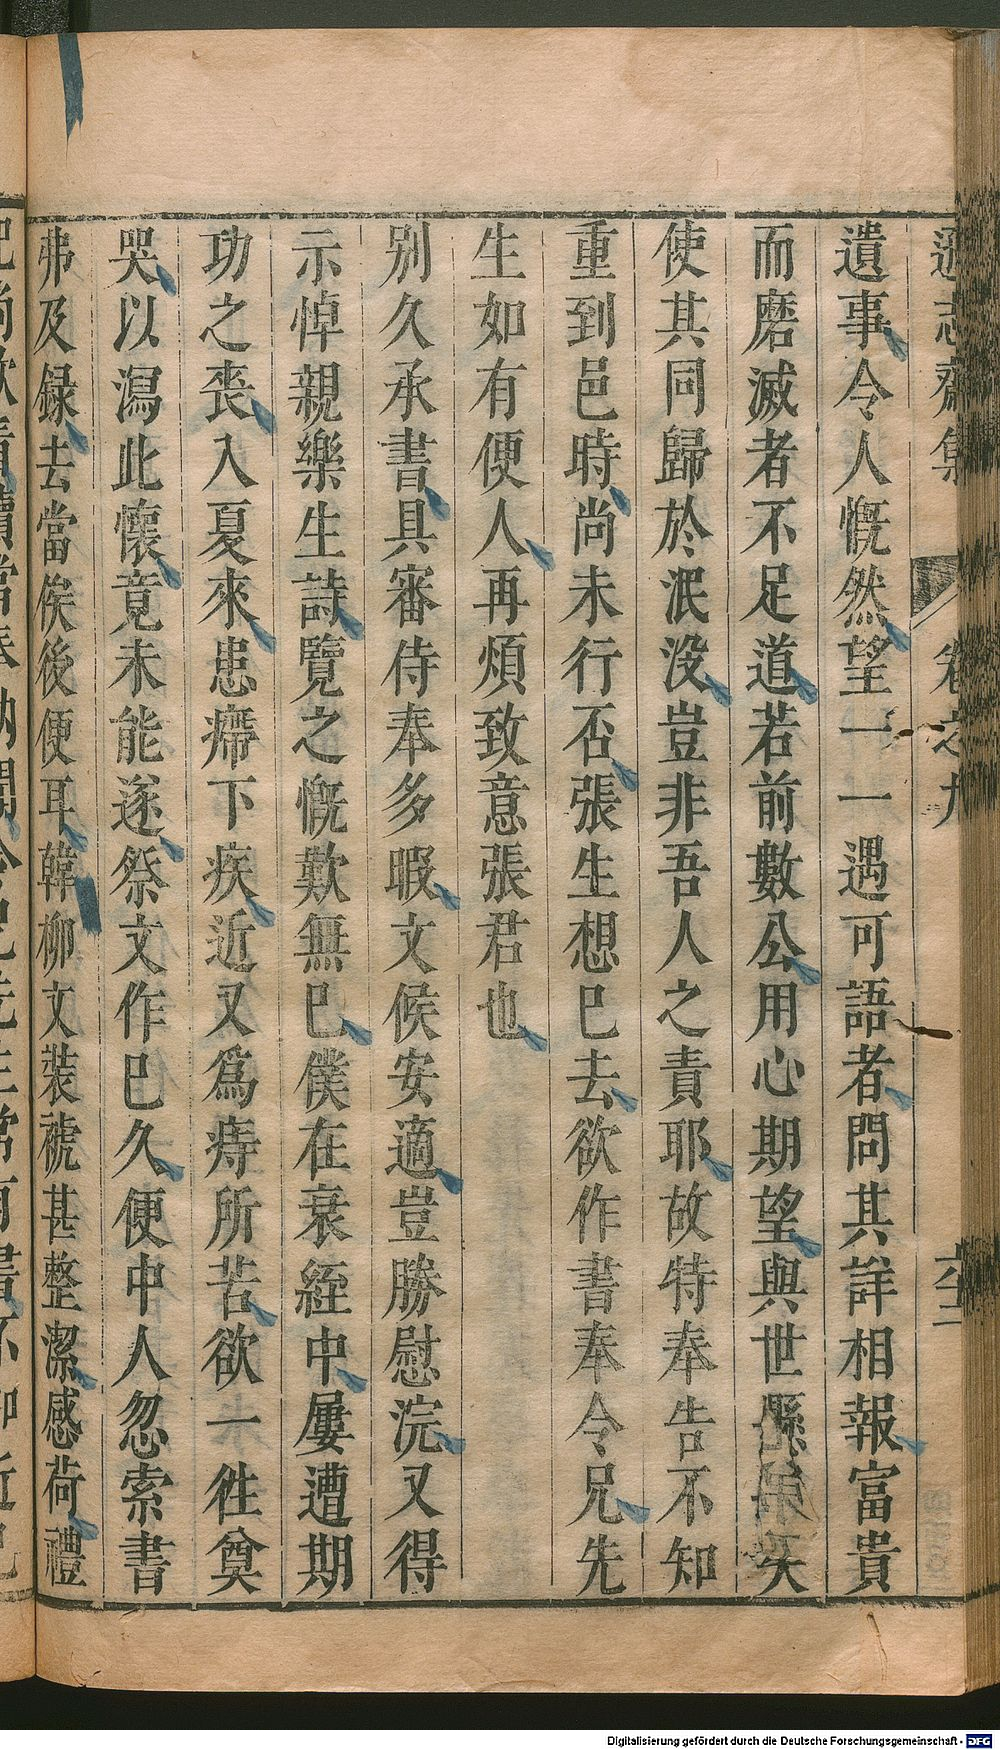 遜志齋集 卷之九 六十二
遺事令人慨然望一一遇可語者問其詳相報富貴
而磨滅者不足道若前數公用心期望與世懸
使其同歸於泯没豈非吾人之責耶故特奉告不知
重到邑時尚未行否張生想巳去欲作書奉令兄先
生如有便人再煩致意張君也
别久承書具審侍奉多暇文候安適豈勝慰浣又得
示悼親樂生詩覽之慨歎無巳僕在衰絰中屢遭期
功之喪入夏來患�legible下疾近又爲痔所苦欲一徃奠
哭以瀉此懷竟未能遂祭文作巳久便中人忽索書
弗及録去當俟後便耳韓柳文装褫甚整潔感荷禮
Digitalisierung gefördert durch die Deutsche Forschungsgemeinschaft - DFG